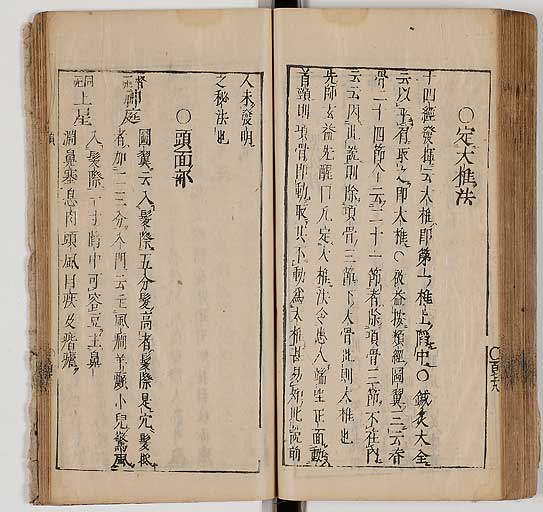 ○定大椎法
十四經發揮云大椎即第一椎上陷中○鍼灸大全
云以平肩取之即大椎○啟益按類經圖翼三云脊
骨二十四節今云二十一節者除項骨三節不在內
云云因此說則除項骨三節下大骨此則大椎也
先師玄益先醒口元定大椎法令患人端坐正面動
首頭則項骨即動取其不動為大椎甚易知此說前
人未發明
之秘法也
○頭面部
督一 神庭 圖翼云入髮際五分髮高者髮際是穴髮低
者加二三分入門云主風癇羊癲小兒驚風
同二 上星 入髮際一寸陷中可容豆主鼻
淵鼻塞息肉頭風目疾及痎瘧
百十九